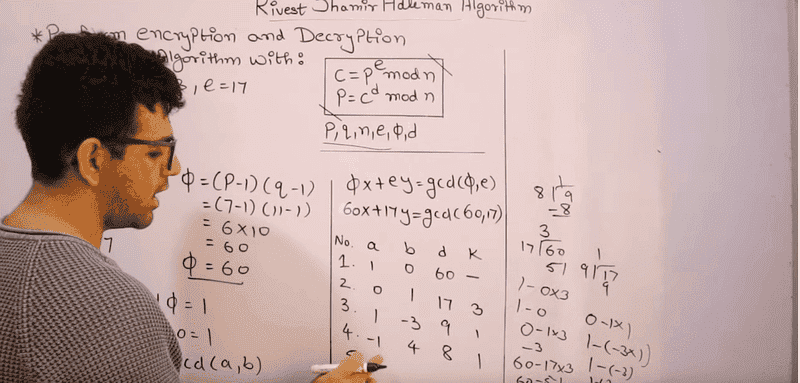 Rivest Shamir Adleman Algorithm
encryption and Decryption
Algorithm with:
, e=17
C = P^e mod n
P = C^d mod n
P, q, n, e, ϕ, d
ϕ = (P-1) (q-1)
= (7-1) (11-1)
= 6 x 10
= 60
ϕ = 60
7
ϕ = 1
= 1
gcd(a,b)
ϕx+ey=gcd(ϕ,e)
60x+17y=gcd(60,17)
No. a b d K
1. 1 0 60 —
2. 0 1 17 3
3. 1 -3 9 1
4. -1 4 8 1
1
8 9
-8
3
17 60 1
51 9 17
9
1-0x3
1-0 0-1x1
0-1x3 1-(-3x1)
-3 1-(-3)
60-17x3
60-51